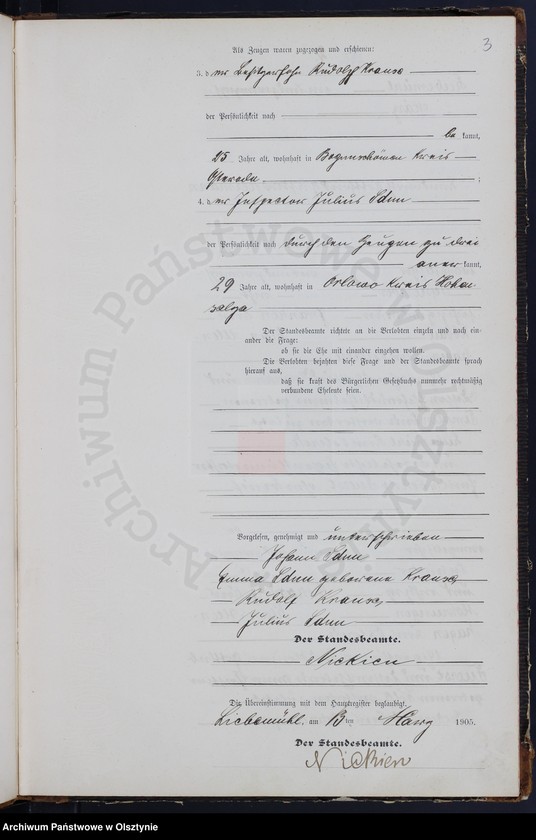 3
Als Zeugen waren zugezogen und erschienen:
3. der Besitzersohn Rudolf Krause
der Persönlichkeit nach
be kannt,
25 Jahre alt, wohnhaft in Bergfriede Kreis
Osterode ;
4. der Inspektor Julius
der Persönlichkeit nach durch den Zeugen zu drei
aner kannt,
29 Jahre alt, wohnhaft in Orlowo Kreis Hohen-
salza
Der Standesbeamte richtete an die Verlobten einzeln und nach ein-
ander die Frage:
ob sie die Ehe mit einander eingehen wollen.
Die Verlobten bejahten diese Frage und der Standesbeamte sprach
hierauf aus,
daß sie kraft des Bürgerlichen Gesetzbuchs nunmehr rechtmäßig
verbundene Eheleute seien.
Vorgelesen, genehmigt und unterschrieben
Johann
Emma geborene Krause
Rudolf Krause
Julius
Der Standesbeamte.
Nickien
Die Übereinstimmung mit dem Hauptregister beglaubigt.
Liebemühl, am ten März 1905.
Der Standesbeamte.
Nickien
Archiwum Państwowe w Olsztynie
Archiwum Państwowe w Olsztynie